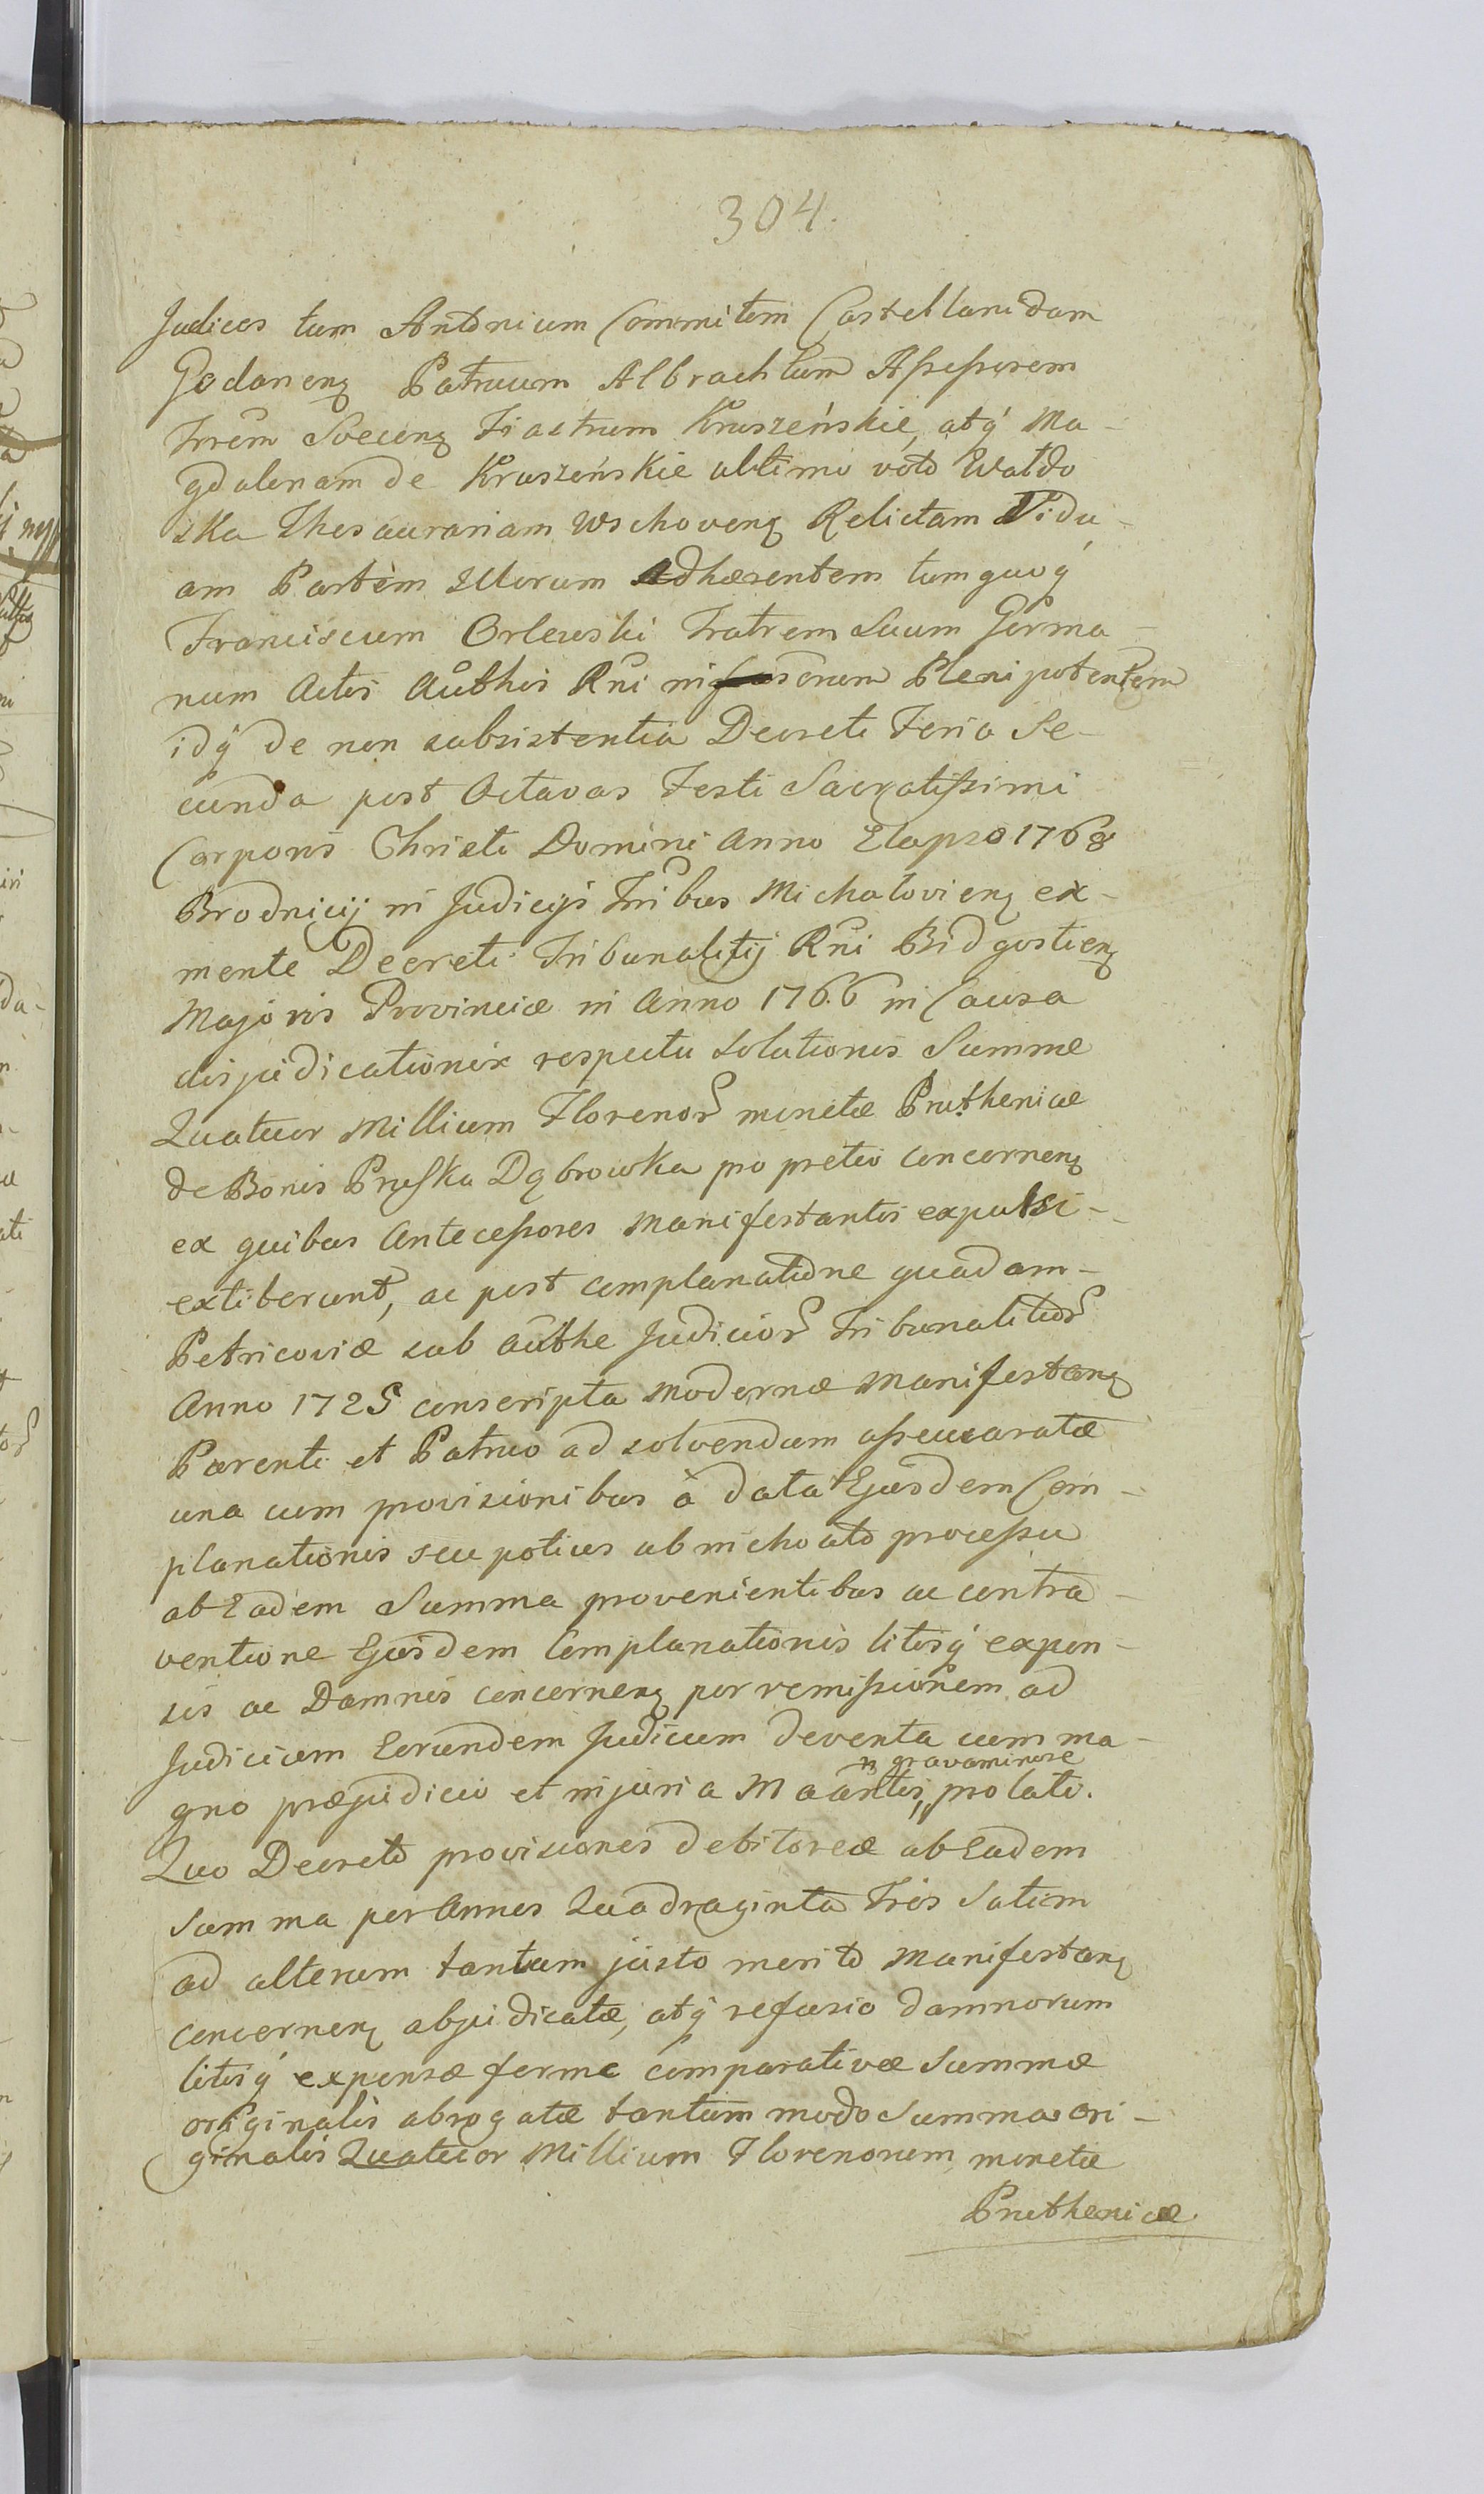 304.
Judices tum Antonium Commitem Castellanidam
Gedanenq Patruum Albrachtum Aſseſsorem
Trrem Svecenq Fiastrum Kruszeńskie, atq́ Ma-
gdalenam de Kruszeńskie ultimo voto Waldo
ska Thesaurariam Wschovenq Relictam Vidu-
am Partem Illorum Adhærentem tum quoq́
Franciscum Orlewski Fratrem Suum Germa-
num Actis Authis Rni Plenipotentem
idq́ de non subsistentia Decreti Feria Se-
cunda post Octavas Festi Sacratiſsimi
Corporis Christi Domini Anno Elapso 1768
Brodnicij in Judicijs Tribus Michalovienq ex-
mente Decreti Tribunalitij Rni Bidgostienq
Majoris Provinciæ in Anno 1766 in Causa
disjudicationis respectu solutionis Summæ
Quatuor Millium Florenor monetæ Pruthenicæ
de Bonis Pruſka Dąbrowka pro pretio concernenq
ex quibus Anteceſsores Manifestantis expulsi-
extiterunt, ac post complanatione quadam-
Petricoviæ sub Authe Judicior Tribunalitior
Anno 1725 conscripta modernæ Manifestanq
Parenti et Patruo ad solvendum aſsecuratæ
una cum provisionibus à data Ejusdem Com-
planationis seu potius ab inchoato proceſsu
ab Eadem Summa provenientibus ac contra-
ventione Ejusdem Complanationis litisq́ expen-
sis ac Damnis concernenq per remiſsionem ad
Judicium Eorundem Judicum deventa cum ma-
n gravaminose
gno præjudicio et injuria Maantis, prolati.
Quo Decreto provisiones debitoreæ ab Eadem
Summa per Annos Quadraginta Trés Saltem
ad alterum tantum justo merito Manifestanq
concernenq abjudicatæ, atq́ refusio damnorum
litisq́ expensæ ferme comparativæ Summæ
originalis abrogatæ tantum modo Summas ori-
ginalis Quatuor Millium Florenorum monetæ
Pruthenicæ